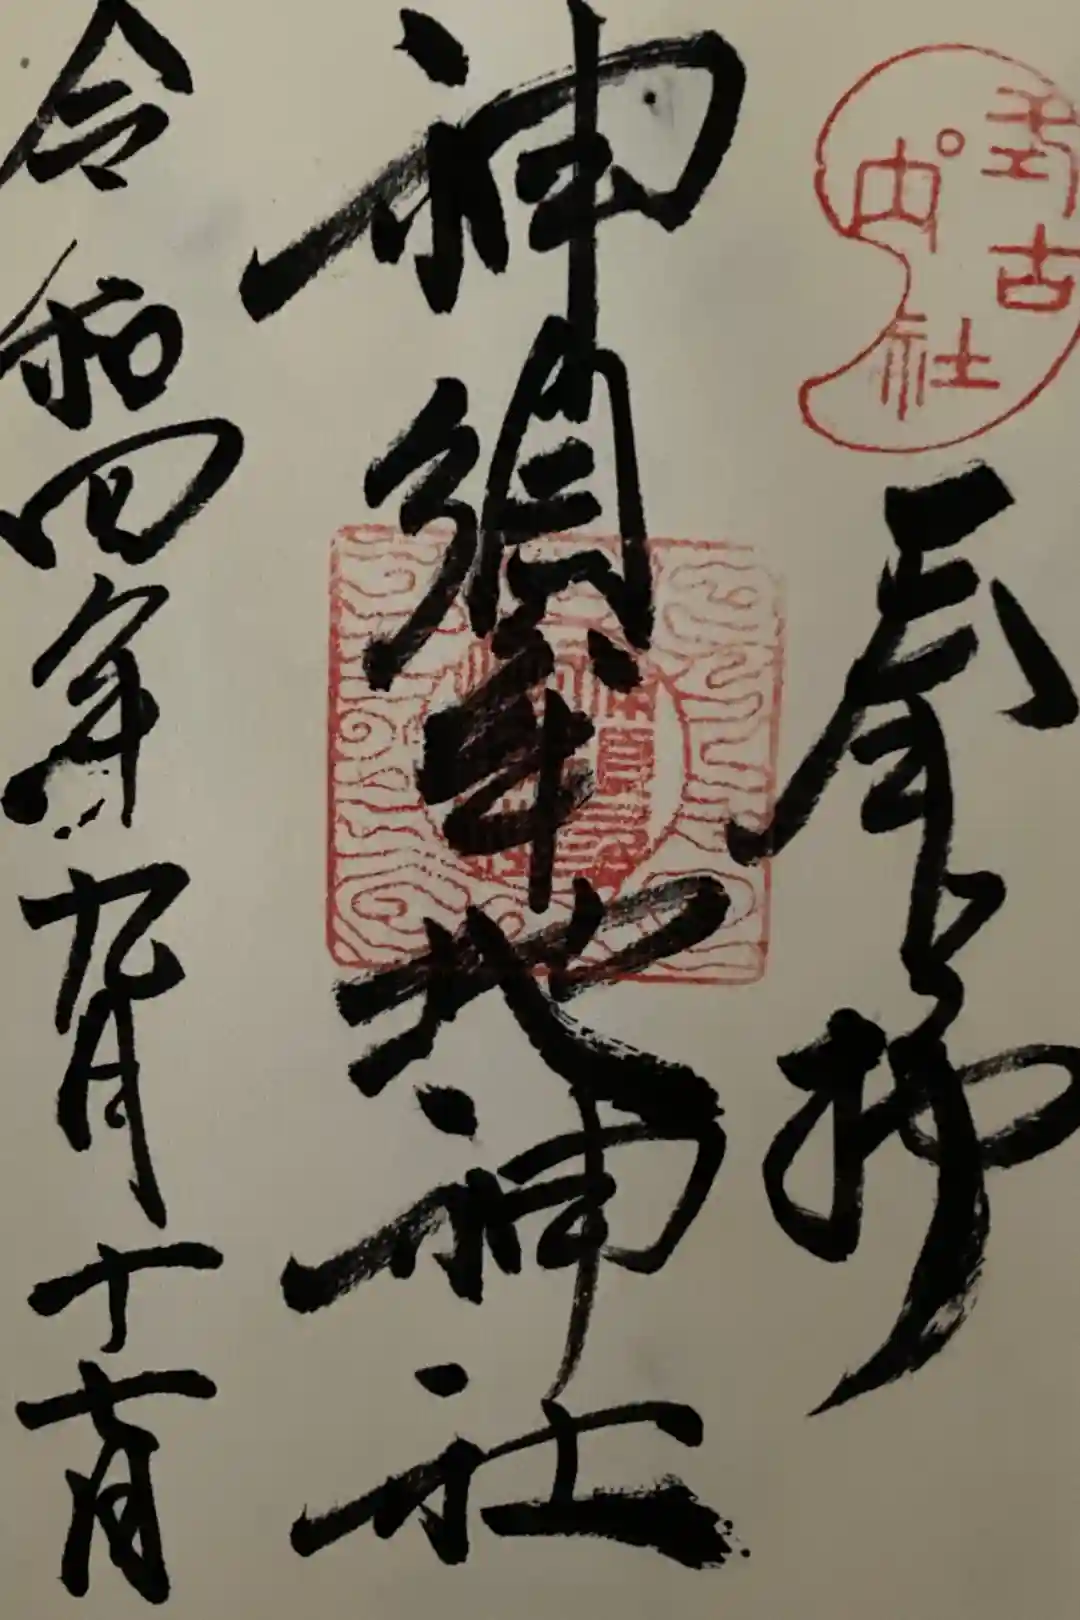 式古
内社
奉拝
神須牟地神社
令和四年九月十日